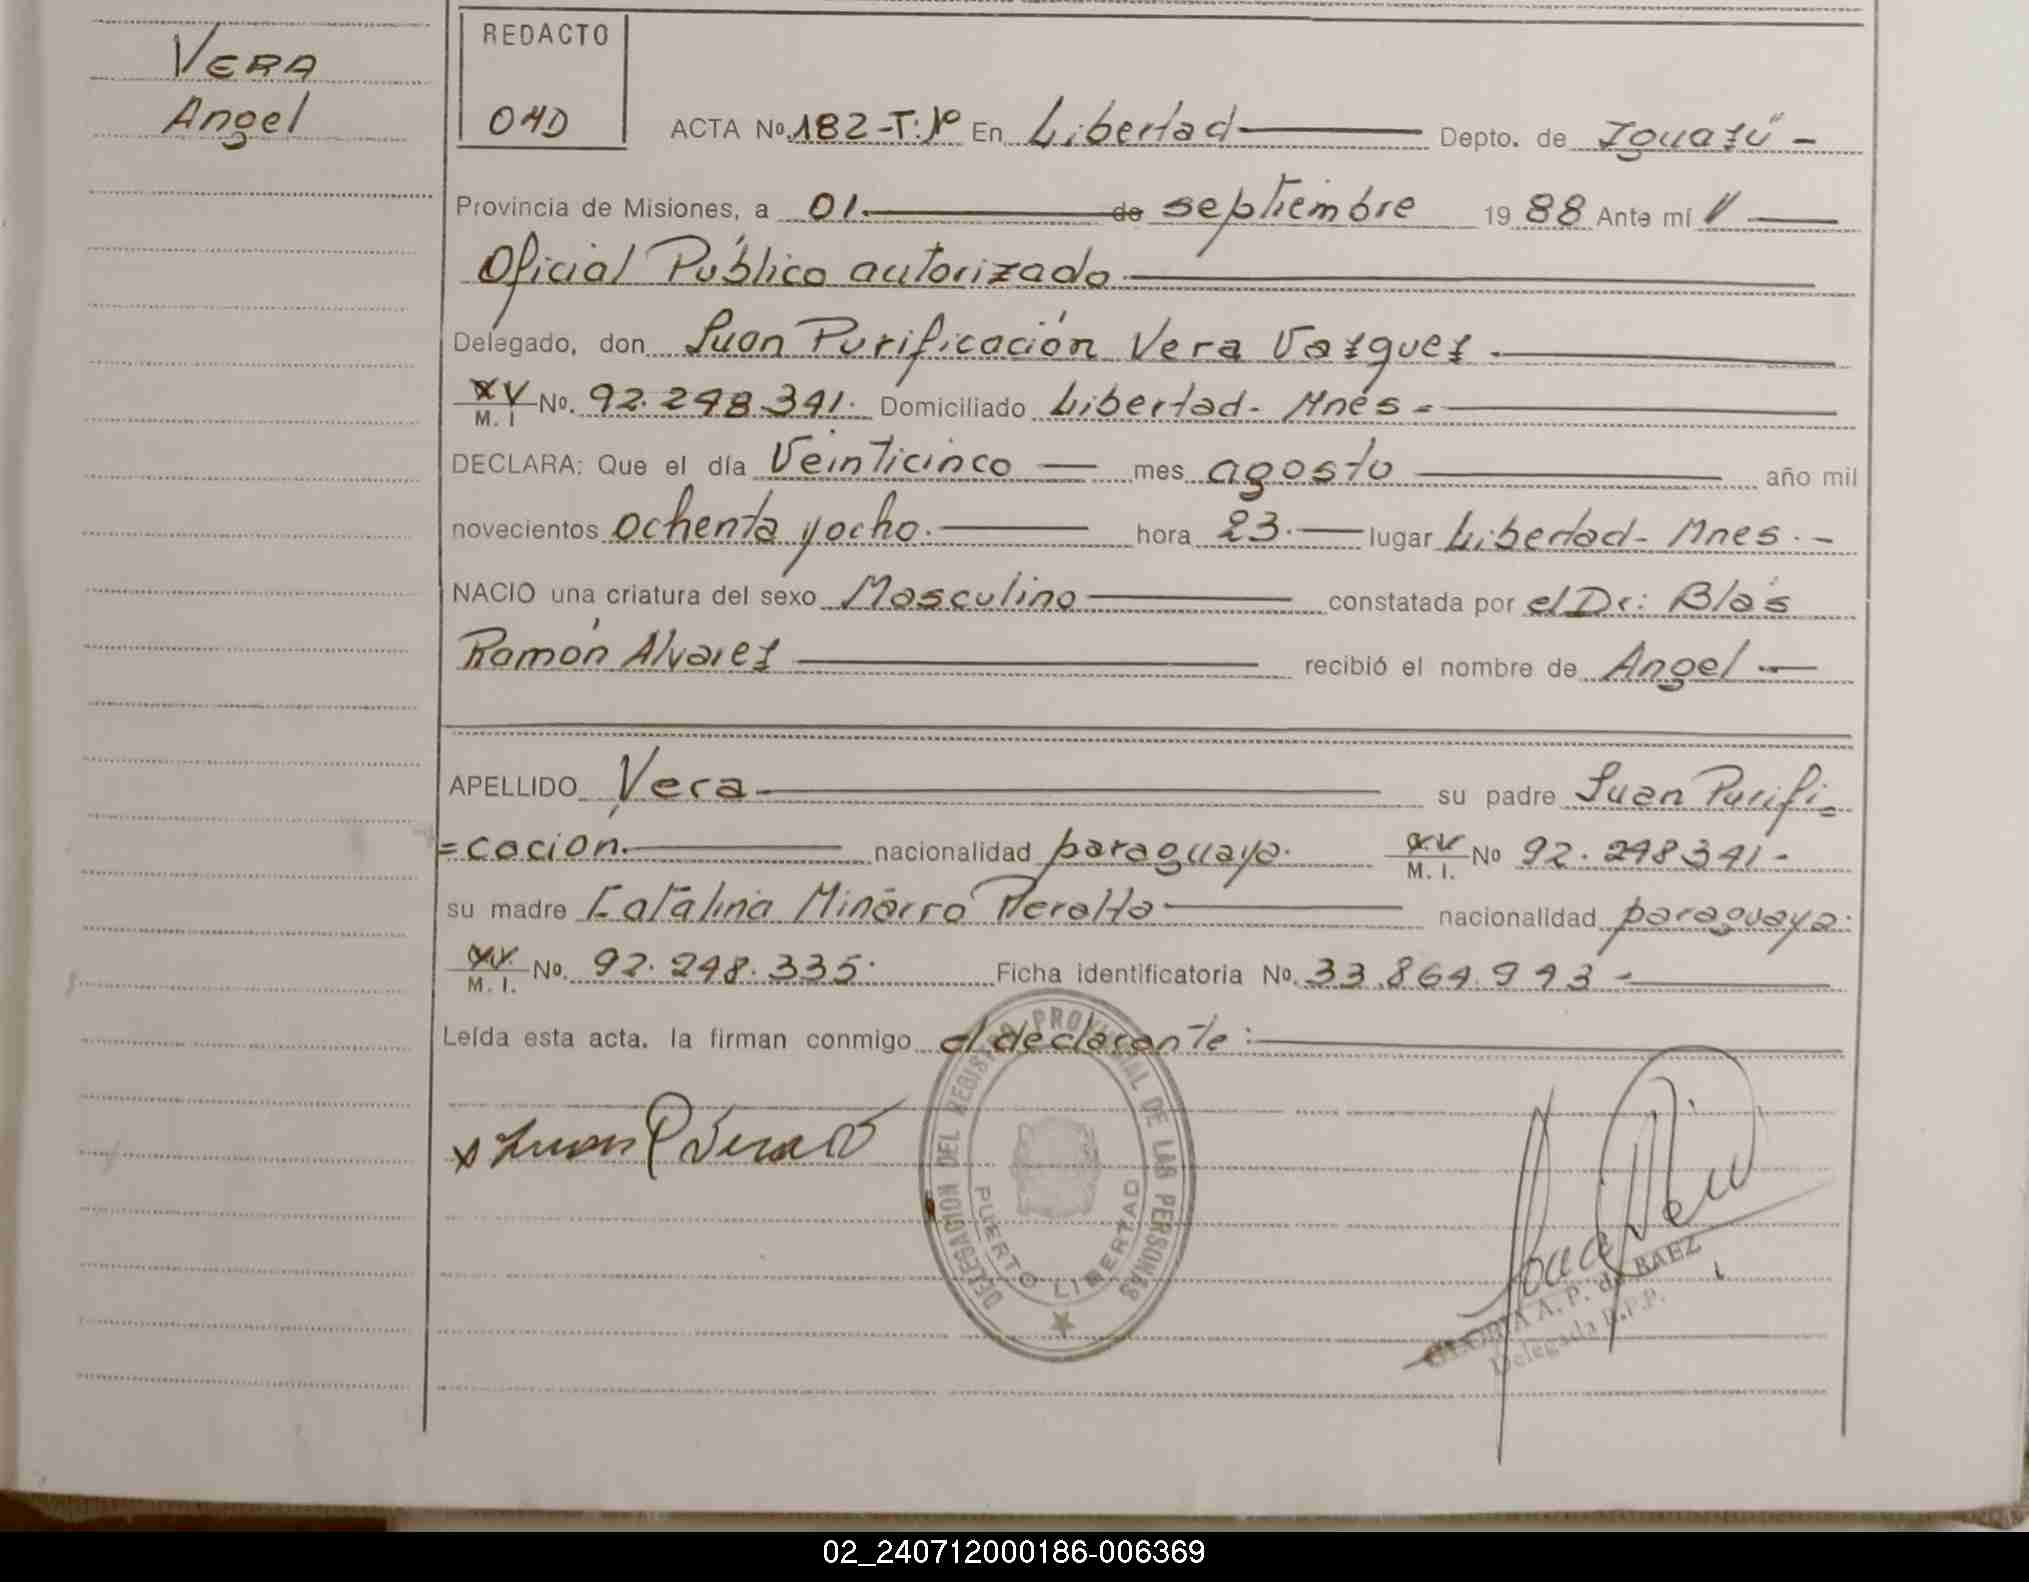 VERA
Angel
REDACTO
OHD
ACTA No. 182-T:1º En Libertad Depto. de Iguazú -
Provincia de Misiones, a 01. de septiembre 1988 Ante mí
Oficial Público autorizado
Delegado, don Juan Purificación Vera Vazquez.
M. I No. 92.298.341. Domiciliado Libertad- Mnes-
DECLARA: Que el día Veinticinco mes agosto año mil
novecientos ochenta y ocho. hora 23. lugar Libertad- Mnes.-
NACIO una criatura del sexo Masculino constatada por el Dr: Blás
Ramón Alvarez recibió el nombre de Angel
APELLIDO Vera su padre Juan Purifi=
=cacion. nacionalidad paraguaya. M. I. No 92.298341-
su madre Catalina Miñarro Peralta nacionalidad paraguaya.
M. I. No. 92.298.335. Ficha identificatoria No. 33.864.993-
Leída esta acta, la firman conmigo el declarante:
DELEGACION DEL REGISTRO PROVINCIAL DE LAS PERSONAS
PUERTO LIBERTAD
A. P. de BAEZ
Delegada R.P.P.
02_240712000186-006369